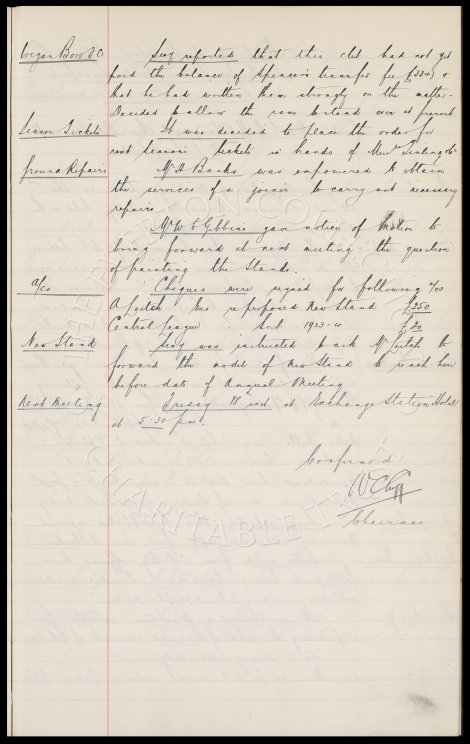 Wigan Boro F C Secy reported that this club had not yet
paid the balance of Spencers transfer fee £334, &
that he had written them strongly on the matter.
Decided to allow the same to stand over at present
Season Tickets It was decided to place the order for
next seasons tickets in hands of Printing Co
Ground Repairs Mr A Banks was empowered to obtain
the services of a joiner to carry out necessary
repairs
Mr W C Gibbins gave notice of Motion to
bring forward at next meeting the question
of painting the Stands.
a/cs Cheques were signed for following a/cs
A Leitch re proposed New Stand £250
Central League Sub 1923-4 £20
New Stand Secy was instructed to ask Mr Leitch to
forward the model of New Stand to reach here
before date of Annual Meeting
Next Meeting Friday 18 inst at Exchange Station Hotel
at 5-30 pm.
Confirmed
W C Cuff
Chairman
THE EVERTON COLLECTION
CHARITABLE TRUST